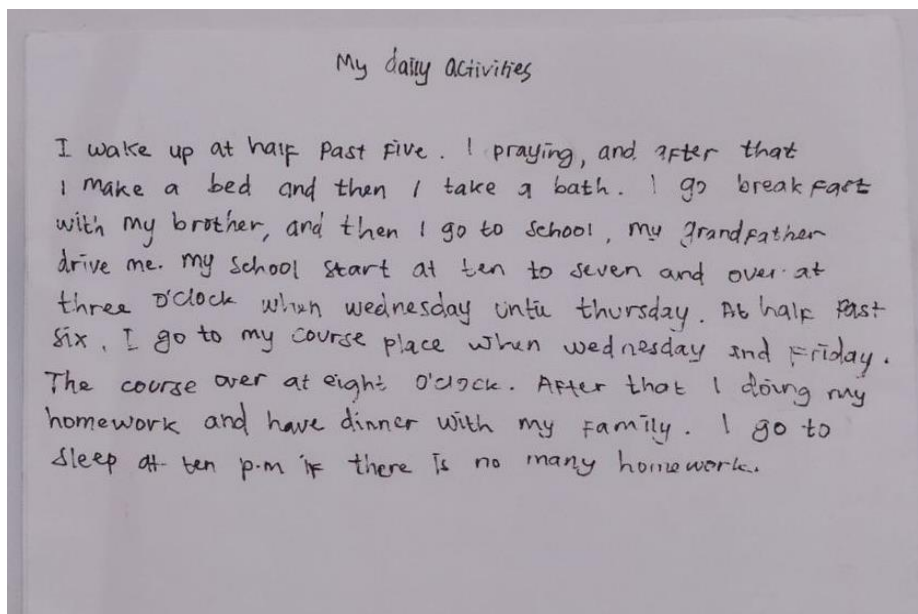 My daily activities
I wake up at half past five. I praying, and after that
I make a bed and then I take a bath. I go breakfart
with my brother, and then I go to school, my grandfather
drive me. My school start at ten to seven and over at
three o'clock when wednesday until thursday. At half past
six, I go to my course place when wednesday and Friday.
The course over at eight o'clock. After that I doing my
homework and have dinner with my family. I go to
sleep at ten p.m if there is no many homework.